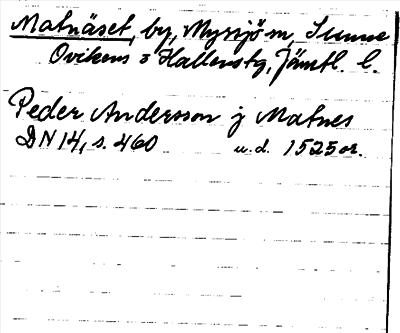 Matnäset, by, Myssjö sn, Sunne
Ovikens o Hallens tg, Jämtl. l.
Peder Andersson j Matnes
DN 14, s. 460 u.d. 1525 or.